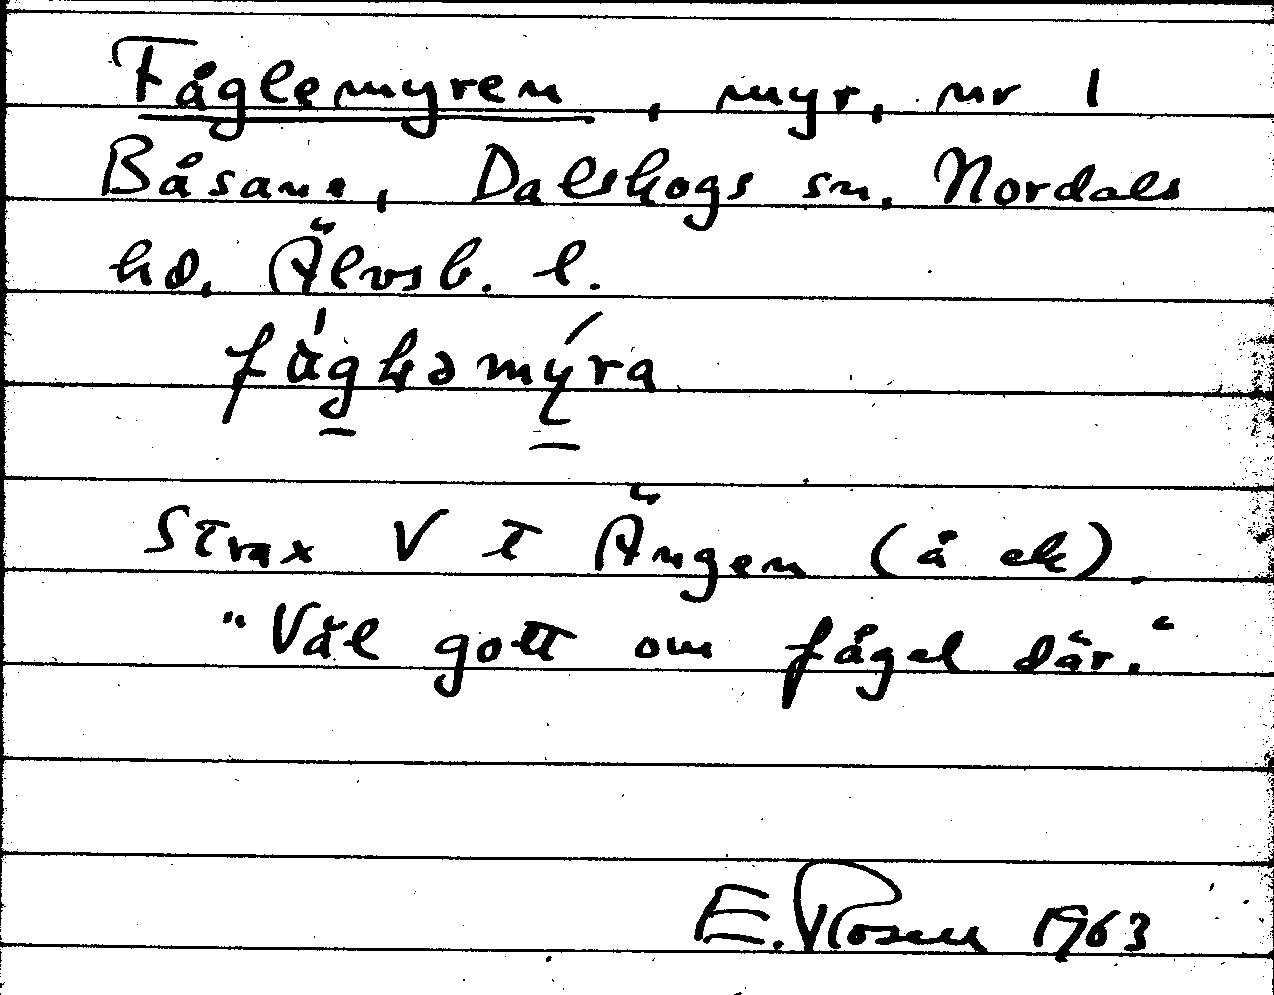 Fåglemyren, myr, nr 1
Båsane, Dalskogs sn, Nordals
hd, Älvsb. l.
Strax V t Ängen (å ek).
"Väl gott om fågel där."
E. Rosen 1963